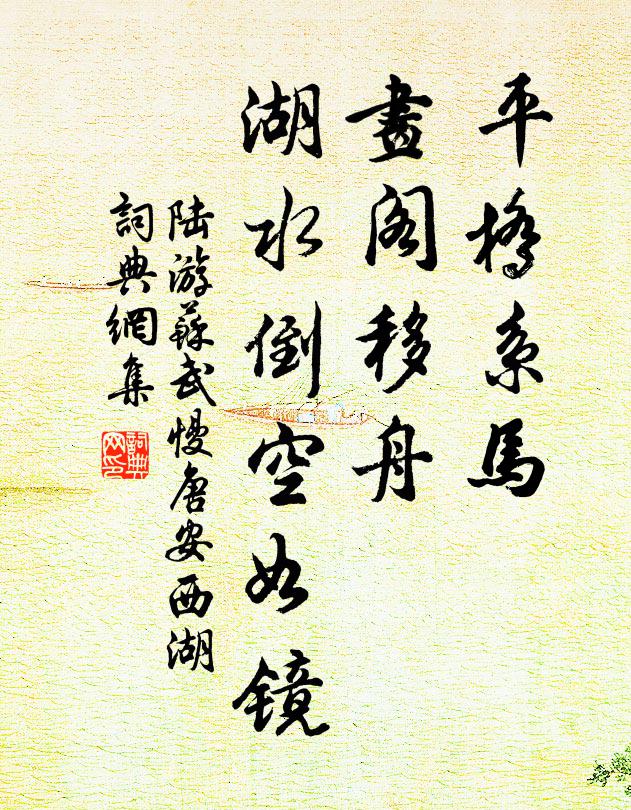 平橋系馬
畫阁移舟
湖水倒空如镜
陆游蘇武慢唐安西湖
詞典網集
詞典
网印